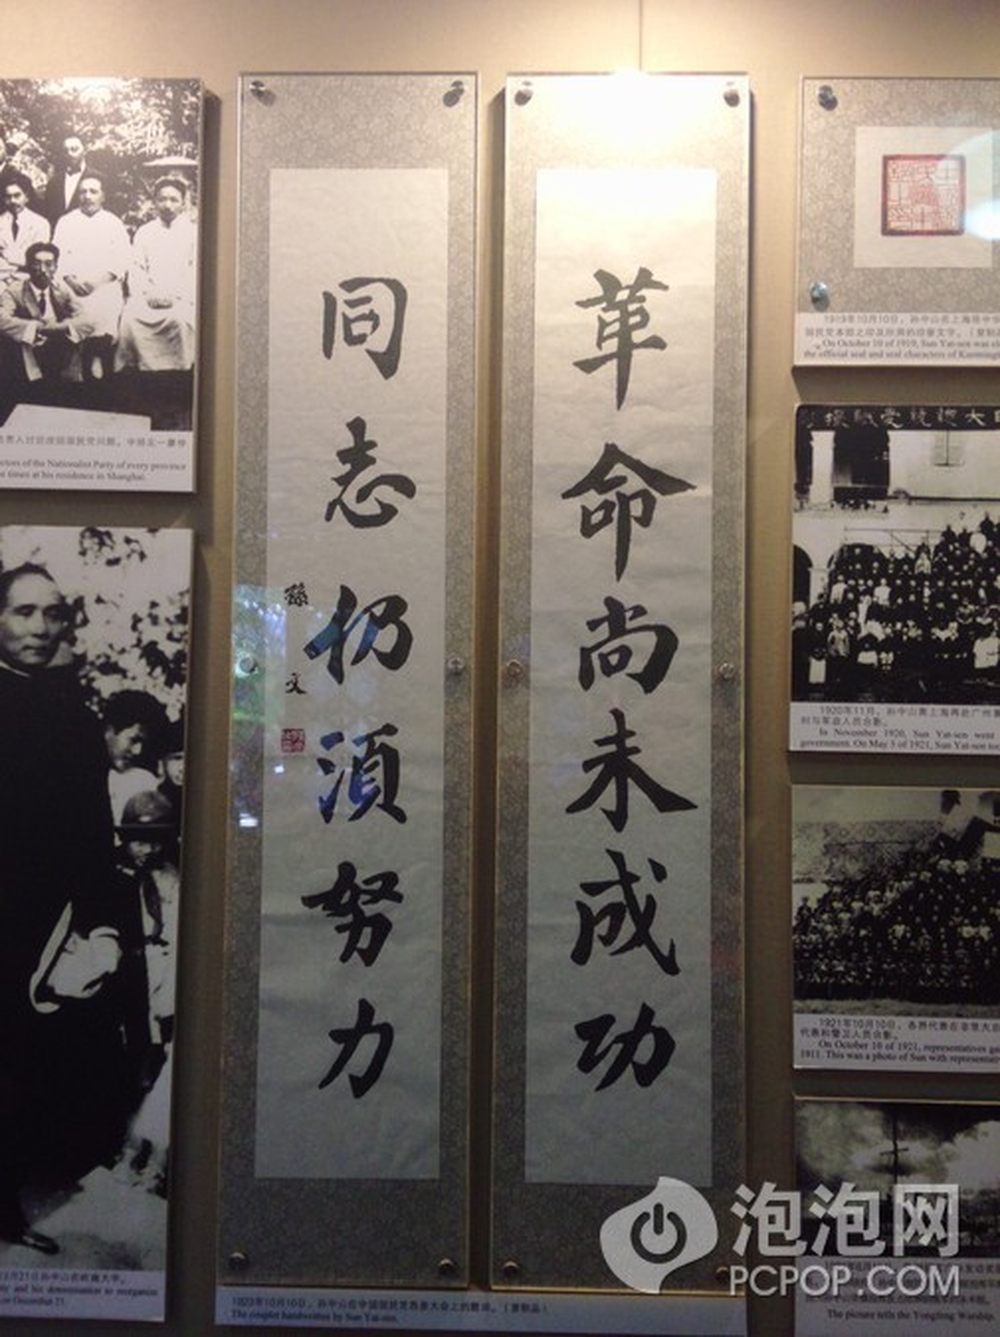 革命尚未成功
同志仍須努力
孫文
ctors of the Nationalist Party of every province
e times at his residence in Shanghai.
1919年10月10日，孙中山在上海将中
国民党本部之印及所用的印章文字。
On October 10 of 1919, Sun Yat-sen was
the official seal and seal characters of Kuoming
1920年11月，孙中山离上海再赴广州
时与军政人员合影。
In November 1920, Sun Yat-sen went
government. On May 5 of 1921, Sun Yat-sen to
1921年10月10日，各界代表在
代表和警卫人员合影。
On October 10 of 1921, representatives
1911. This was a photo of Sun with representati
月21日孙中山在岭南大学。
ty and his determination to reorganize
on December 21.
1923年10月10日，孙中山在中国国民党恳亲大会上的题词。（复制品）
The couplet handwritten by Sun Yat-sen.
The picture tells the Yongfeng Warship.
泡泡网
PCPOP.COM